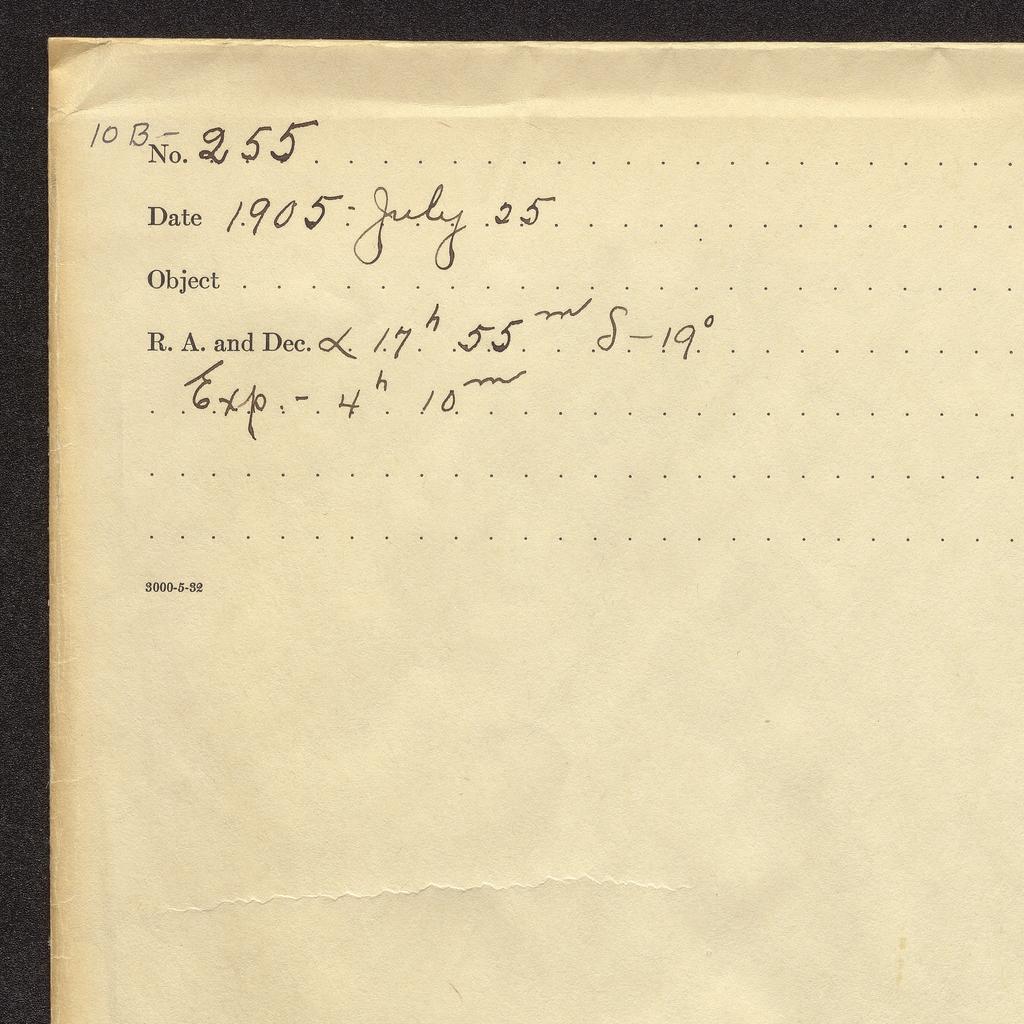 10 B-
No. 255
Date 1905-July 25
Object
R. A. and Dec. α 17ʰ 55ᵐ δ-19°
Exp.- 4ʰ 10ᵐ
3000-5-32